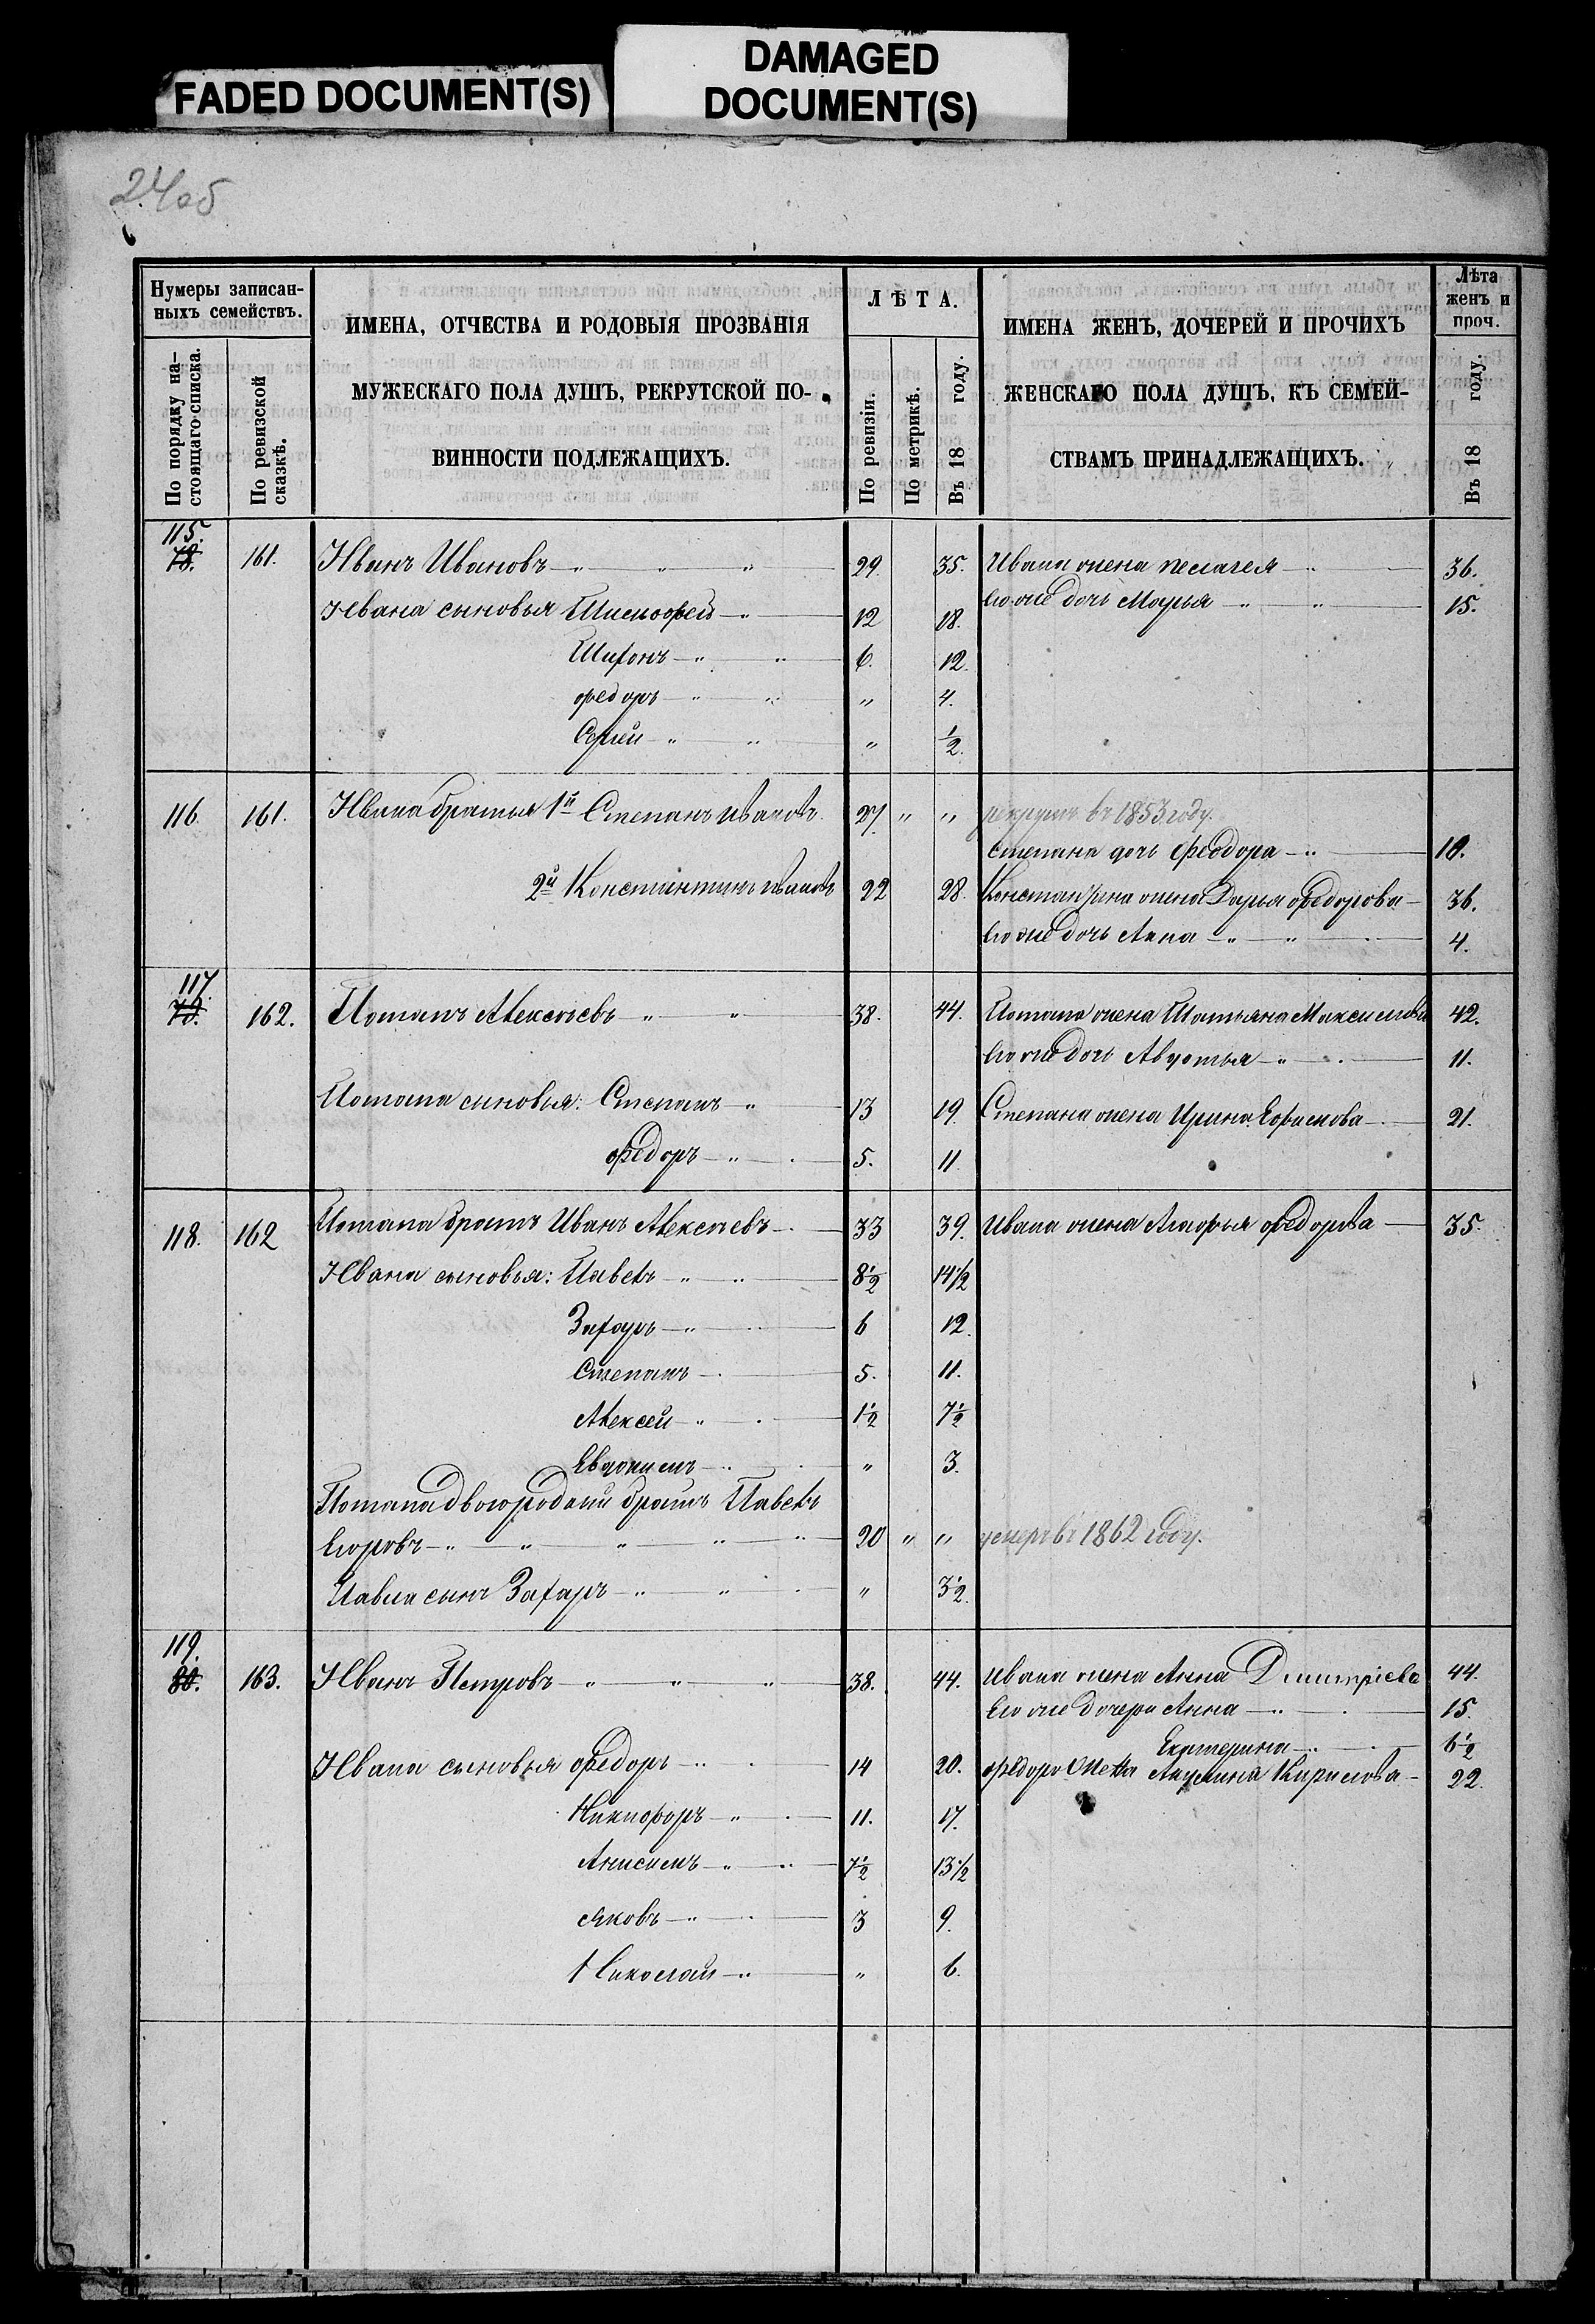 FADED DOCUMENT(S)
DAMAGED
DOCUMENT(S)
24об
Нумеры записан-
ныхъ семействъ.
По порядку на-
стоящаго списка.
По ревизской
сказкѣ.
ИМЕНА, ОТЧЕСТВА И РОДОВЫЯ ПРОЗВАНІЯ
МУЖЕСКАГО ПОЛА ДУШЪ, РЕКРУТСКОЙ ПО-
ВИННОСТИ ПОДЛЕЖАЩИХЪ.
ЛѢТА.
По ревизіи.
По метрикѣ.
Въ 18 году.
ИМЕНА ЖЕНЪ, ДОЧЕРЕЙ И ПРОЧИХЪ
ЖЕНСКАГО ПОЛА ДУШЪ, КЪ СЕМЕЙ-
СТВАМЪ ПРИНАДЛЕЖАЩИХЪ.
Лѣта
женъ и
проч.
Въ 18 году.
115.
78. 161. Иванъ Ивановъ — „ — „ — „ 29. 35. Ивана жена Пелагея — „ — 36.
Ивана сыновья Тимофей — „ — 12 18. Его же дочь Марья — „ — „ — 15.
Тихонъ — „ — „ — 6. 12.
Федоръ — „ — „ — „ 4.
Сергей — „ — „ — „ 1/2.
116. 161. Ивана братья 1й Степанъ Ивановъ 27. „ „ рекрутъ въ 1853 году.
Степана дочь Феодора — „ — 10.
2й Константинъ Ивановъ 22 28. Константина жена Дарья Федорова — 36.
Его же дочь Анна — „ — „ — 4.
117.
79. 162. Потапъ Алексѣевъ „ — „ — 38. 44. Потапа жена Татьяна Максимова 42.
Его же дочь Авдотья — „ — 11.
Потапа сыновья: Степанъ — „ — 13 19. Степана жена Ирина Ефимова — 21.
Федоръ — „ — 5. 11.
118. 162 Потапа братъ Иванъ Алексѣевъ — 33 39. Ивана жена Агафья Федорова — 35.
Ивана сыновья: Павелъ — „ — „ 8 1/2 14 1/2
Захаръ — „ — 6 12.
Степанъ — 5. 11.
Алексей — „ — 1 1/2 7 1/2
Евдокимъ — „ — „ 3.
Потапа двоюродный братъ Павелъ
Егоровъ — „ — „ — „ — „ — „ 20 „ „ умеръ въ 1862 году.
Павла сынъ Захаръ — „ — „ — „ 3 1/2.
119.
80. 163. Иванъ Петровъ — „ — „ — „ 38. 44. Ивана жена Анна Дмитріева 44.
Его же дочери Анна — „ — 15.
Екатерина — „ — 6 1/2
Ивана сыновья Федоръ — „ — 14 20. Федора жена Акулина Кирилова — 22.
Никифоръ — „ — 11. 17.
Анисимъ — „ — „ 7 1/2 13 1/2
Яковъ — „ — 3 9.
Николай — „ — „ 6.